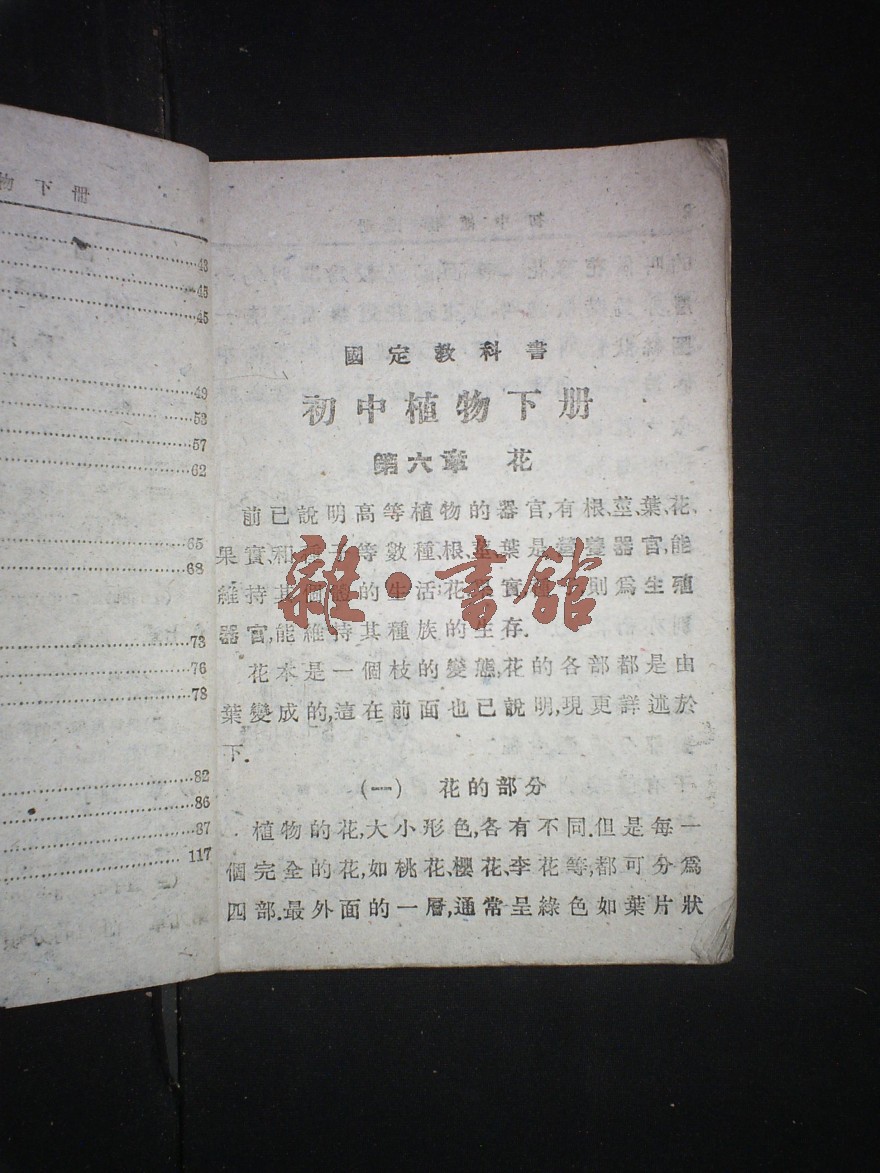 物下冊
43
45
45
49
53
57
62
65
68
73
76
78
82
86
87
117
國定教科書
初中植物下册
第六章 花
前已說明高等植物的器官,有根、莖、葉、花、
果實、和種子等數種,根、莖、葉是營養器官,能
維持其個體的生活;花、果實、種子,則爲生殖
器官,能維持其種族的生存.
花本是一個枝的變態,花的各部都是由
葉變成的,這在前面也已說明,現更詳述於
下.
(一) 花的部分
植物的花,大小形色,各有不同.但是每一
個完全的花,如桃花、櫻花、李花等,都可分爲
四部.最外面的一層,通常呈綠色如葉片狀
雜·書館